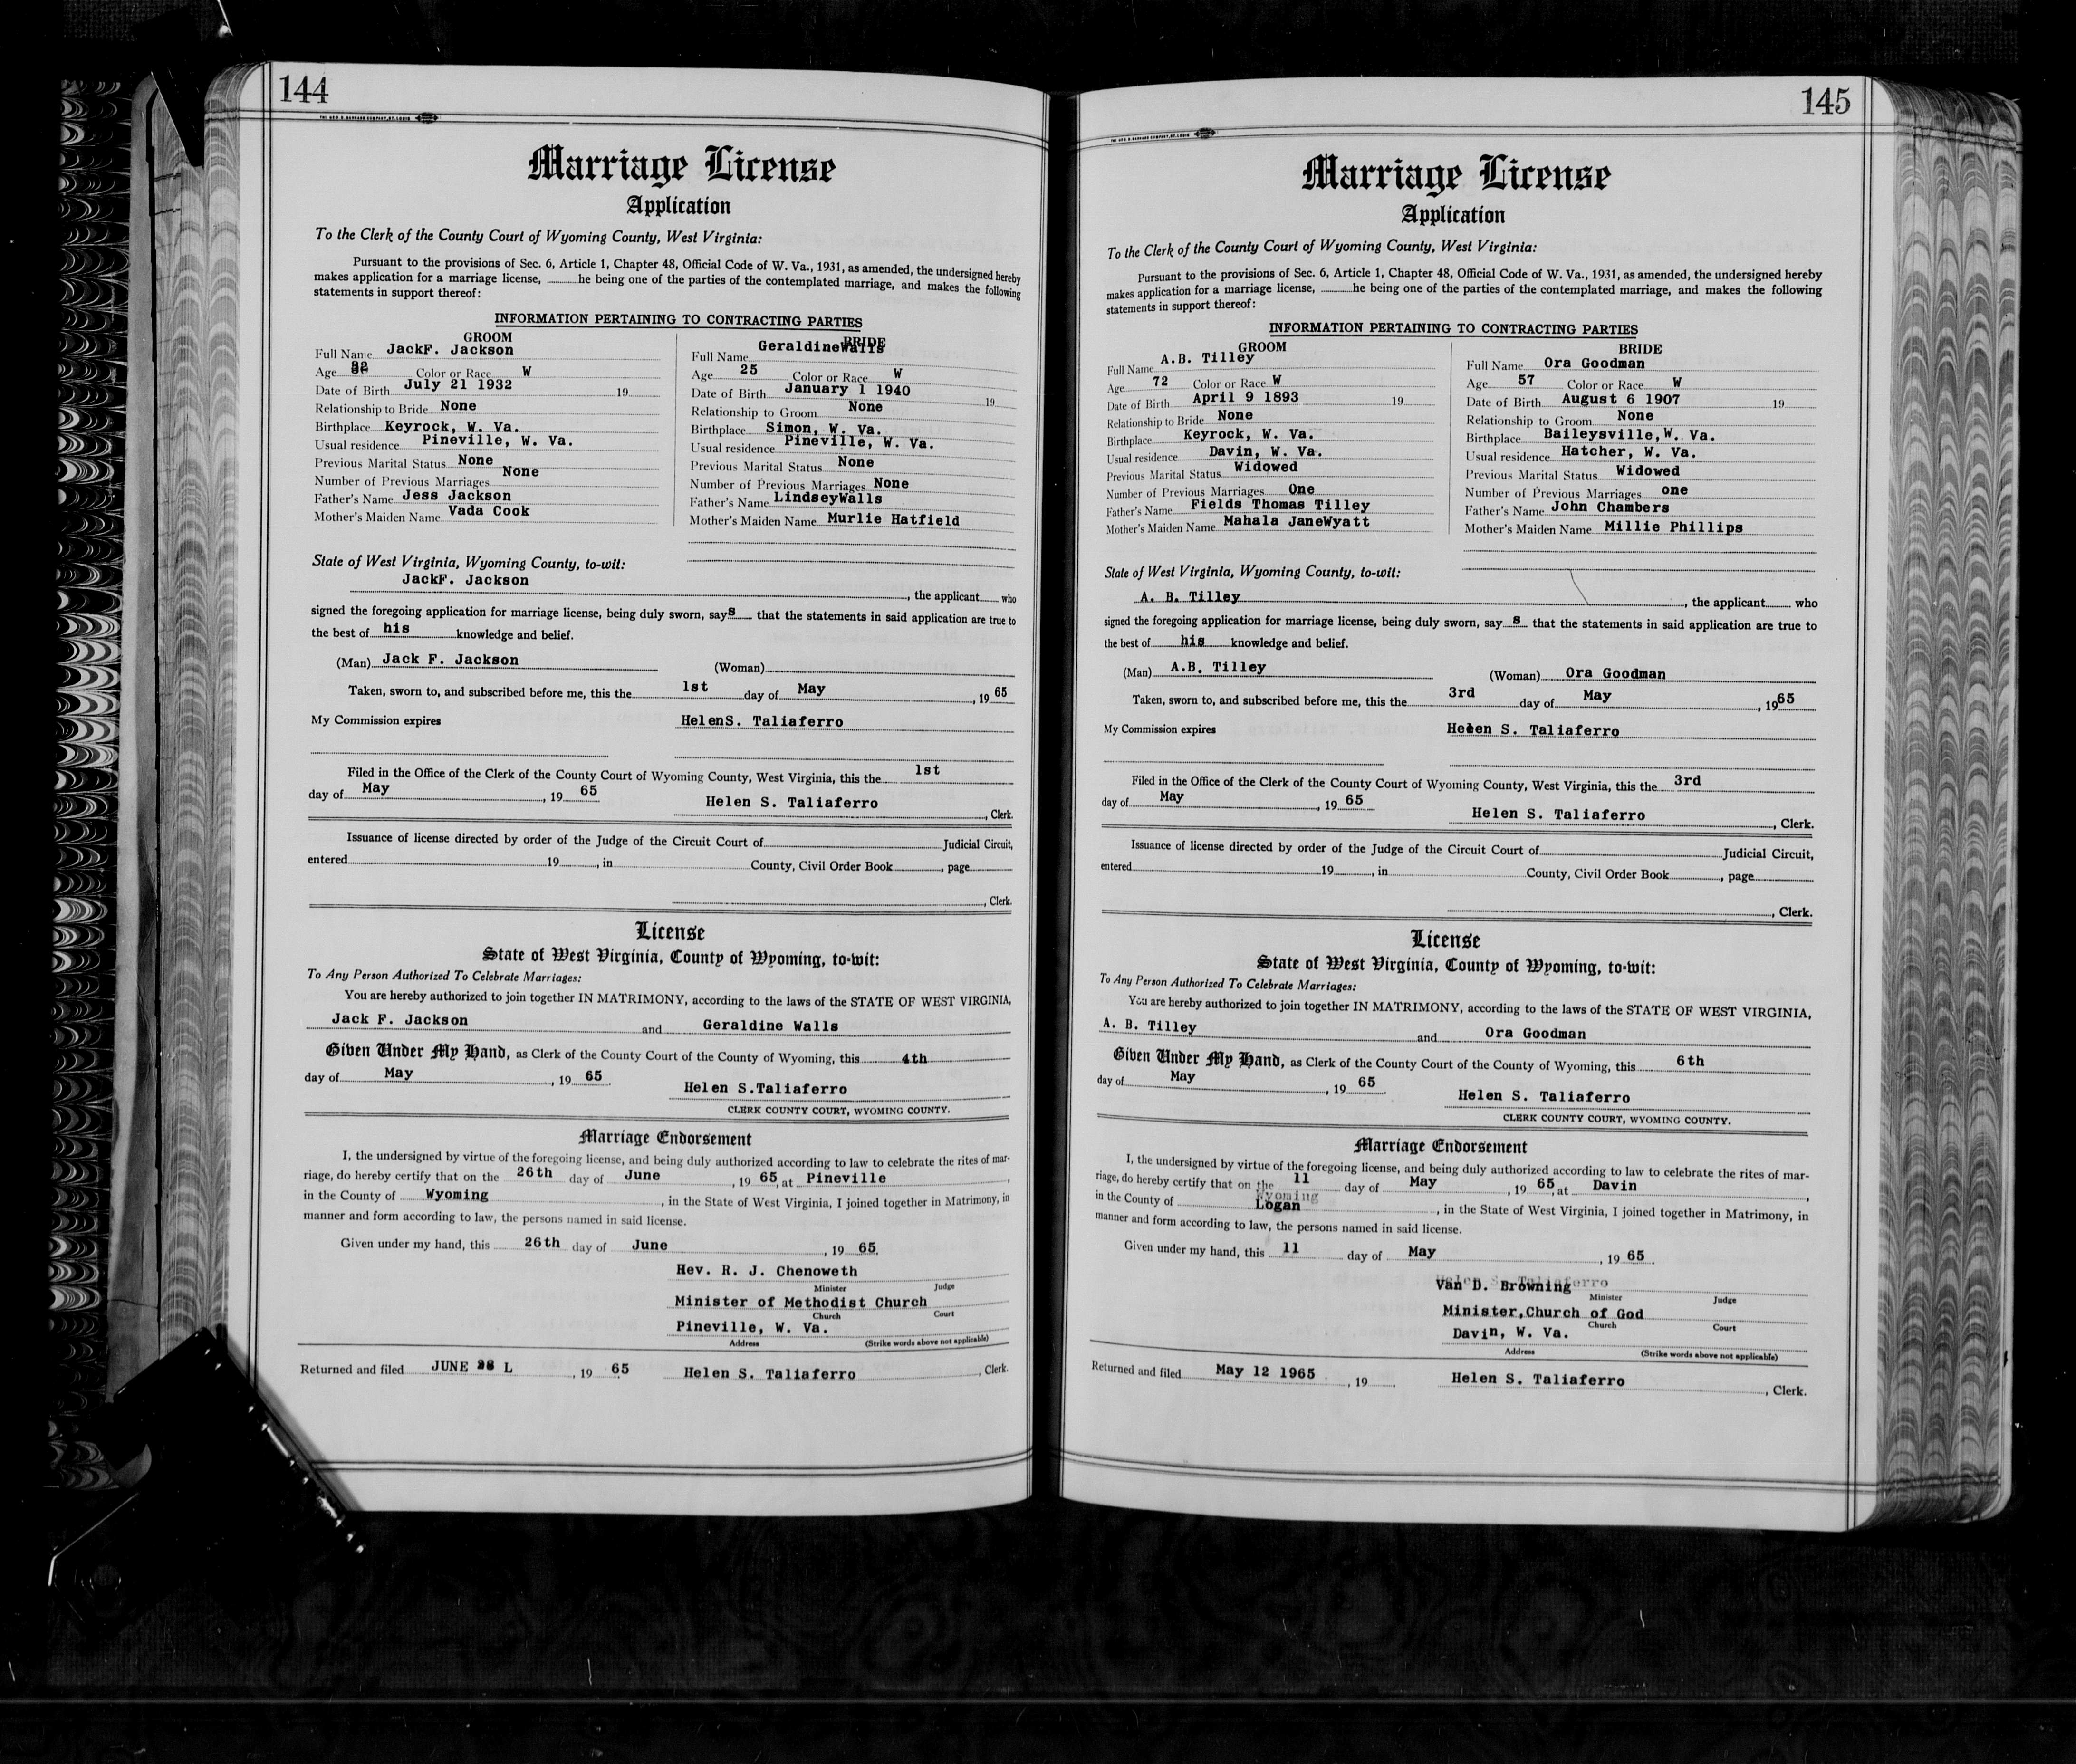 144
Marriage License
Application
To the Clerk of the County Court of Wyoming County, West Virginia:
Pursuant to the provisions of Sec. 6, Article 1, Chapter 48, Official Code of W. Va., 1931, as amended, the undersigned hereby
makes application for a marriage license, he being one of the parties of the contemplated marriage, and makes the following
statements in support thereof:
INFORMATION PERTAINING TO CONTRACTING PARTIES
GROOM
Full Name JackF. Jackson
Age 32 Color or Race W
Date of Birth July 21 1932 19
Relationship to Bride None
Birthplace Keyrock, W. Va.
Usual residence Pineville, W. Va.
Previous Marital Status None
Number of Previous Marriages None
Father's Name Jess Jackson
Mother's Maiden Name Vada Cook
BRIDE
Full Name GeraldineWalls
Age 25 Color or Race W
Date of Birth January 1 1940 19
Relationship to Groom None
Birthplace Simon, W. Va.
Usual residence Pineville, W. Va.
Previous Marital Status None
Number of Previous Marriages None
Father's Name LindseyWalls
Mother's Maiden Name Murlie Hatfield
State of West Virginia, Wyoming County, to-wit:
JackF. Jackson
, the applicant who
signed the foregoing application for marriage license, being duly sworn, says that the statements in said application are true to
the best of his knowledge and belief.
(Man) Jack F. Jackson (Woman)
Taken, sworn to, and subscribed before me, this the 1st day of May , 19 65
My Commission expires HelenS. Taliaferro
Filed in the Office of the Clerk of the County Court of Wyoming County, West Virginia, this the 1st
day of May , 19 65 Helen S. Taliaferro , Clerk.
Issuance of license directed by order of the Judge of the Circuit Court of Judicial Circuit,
entered 19 , in County, Civil Order Book , page
, Clerk.
License
State of West Virginia, County of Wyoming, to-wit:
To Any Person Authorized To Celebrate Marriages:
You are hereby authorized to join together IN MATRIMONY, according to the laws of the STATE OF WEST VIRGINIA,
Jack F. Jackson and Geraldine Walls
Given Under My Hand, as Clerk of the County Court of the County of Wyoming, this 4th
day of May , 19 65 Helen S.Taliaferro
CLERK COUNTY COURT, WYOMING COUNTY.
Marriage Endorsement
I, the undersigned by virtue of the foregoing license, and being duly authorized according to law to celebrate the rites of mar-
riage, do hereby certify that on the 26th day of June , 19 65, at Pineville ,
in the County of Wyoming , in the State of West Virginia, I joined together in Matrimony, in
manner and form according to law, the persons named in said license.
Given under my hand, this 26th day of June , 19 65.
Hev. R. J. Chenoweth
Minister Judge
Minister of Methodist Church
Church Court
Pineville, W. Va.
Address (Strike words above not applicable)
Returned and filed JUNE 28 L , 19 65 Helen S. Taliaferro , Clerk.
145
Marriage License
Application
To the Clerk of the County Court of Wyoming County, West Virginia:
Pursuant to the provisions of Sec. 6, Article 1, Chapter 48, Official Code of W. Va., 1931, as amended, the undersigned hereby
makes application for a marriage license, he being one of the parties of the contemplated marriage, and makes the following
statements in support thereof:
INFORMATION PERTAINING TO CONTRACTING PARTIES
GROOM
Full Name A.B. Tilley
Age 72 Color or Race W
Date of Birth April 9 1893 19
Relationship to Bride None
Birthplace Keyrock, W. Va.
Usual residence Davin, W. Va.
Previous Marital Status Widowed
Number of Previous Marriages One
Father's Name Fields Thomas Tilley
Mother's Maiden Name Mahala JaneWyatt
BRIDE
Full Name Ora Goodman
Age 57 Color or Race W
Date of Birth August 6 1907 19
Relationship to Groom None
Birthplace Baileysville, W. Va.
Usual residence Hatcher, W. Va.
Previous Marital Status Widowed
Number of Previous Marriages one
Father's Name John Chambers
Mother's Maiden Name Millie Phillips
State of West Virginia, Wyoming County, to-wit:
A. B. Tilley , the applicant who
signed the foregoing application for marriage license, being duly sworn, say s that the statements in said application are true to
the best of his knowledge and belief.
(Man) A.B. Tilley (Woman) Ora Goodman
Taken, sworn to, and subscribed before me, this the 3rd day of May , 19 65
My Commission expires Helen S. Taliaferro
Filed in the Office of the Clerk of the County Court of Wyoming County, West Virginia, this the 3rd
day of May , 19 65 Helen S. Taliaferro , Clerk.
Issuance of license directed by order of the Judge of the Circuit Court of Judicial Circuit,
entered 19 , in County, Civil Order Book , page
, Clerk.
License
State of West Virginia, County of Wyoming, to-wit:
To Any Person Authorized To Celebrate Marriages:
You are hereby authorized to join together IN MATRIMONY, according to the laws of the STATE OF WEST VIRGINIA,
A. B. Tilley and Ora Goodman
Given Under My Hand, as Clerk of the County Court of the County of Wyoming, this 6th
day of May , 19 65 Helen S. Taliaferro
CLERK COUNTY COURT, WYOMING COUNTY.
Marriage Endorsement
I, the undersigned by virtue of the foregoing license, and being duly authorized according to law to celebrate the rites of mar-
riage, do hereby certify that on the 11 day of May , 19 65, at Davin ,
in the County of Logan , in the State of West Virginia, I joined together in Matrimony, in
manner and form according to law, the persons named in said license.
Given under my hand, this 11 day of May , 19 65.
Van D. Browning
Minister Judge
Minister,Church of God
Church Court
Davin, W. Va.
Address (Strike words above not applicable)
Returned and filed May 12 1965 , 19 Helen S. Taliaferro , Clerk.